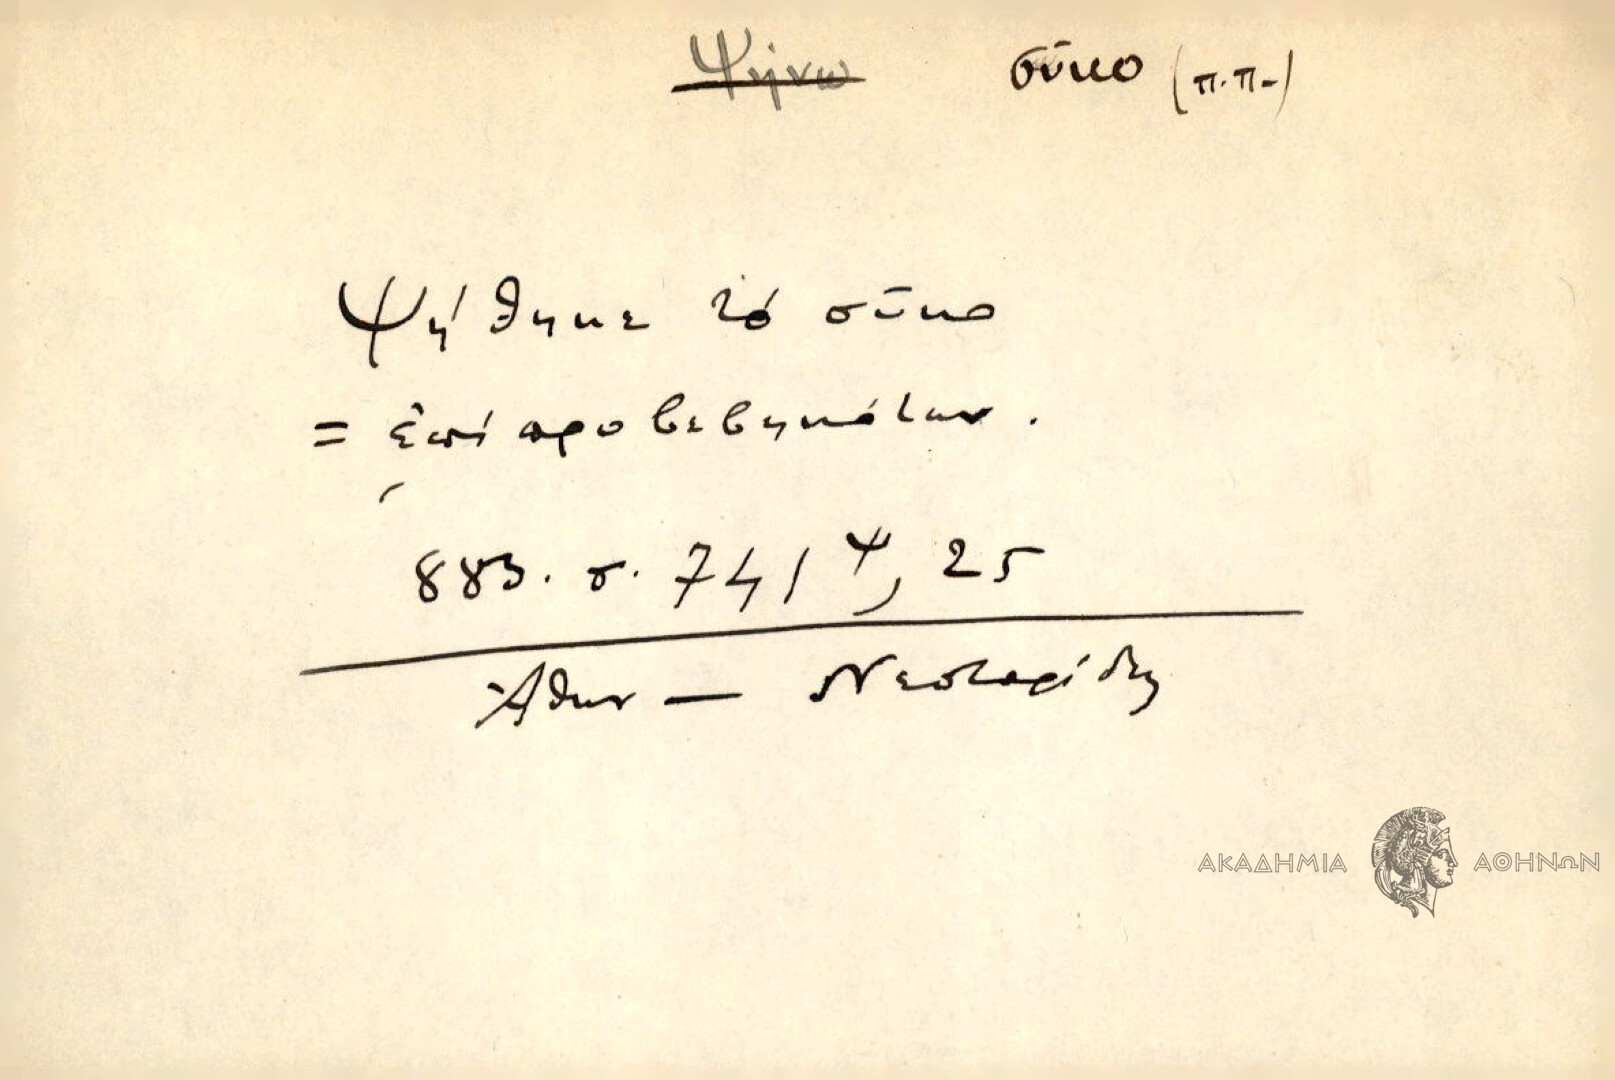 Ψήνω σῦκο (π.π.)
Ψήθηκε τό σῦκο
= ἐπί προβεβηκότων.
883. σ. 741 Ψ, 25
Ἀθην — Νεστορίδης
ΑΚΑΔΗΜΙΑ ΑΘΗΝΩΝ